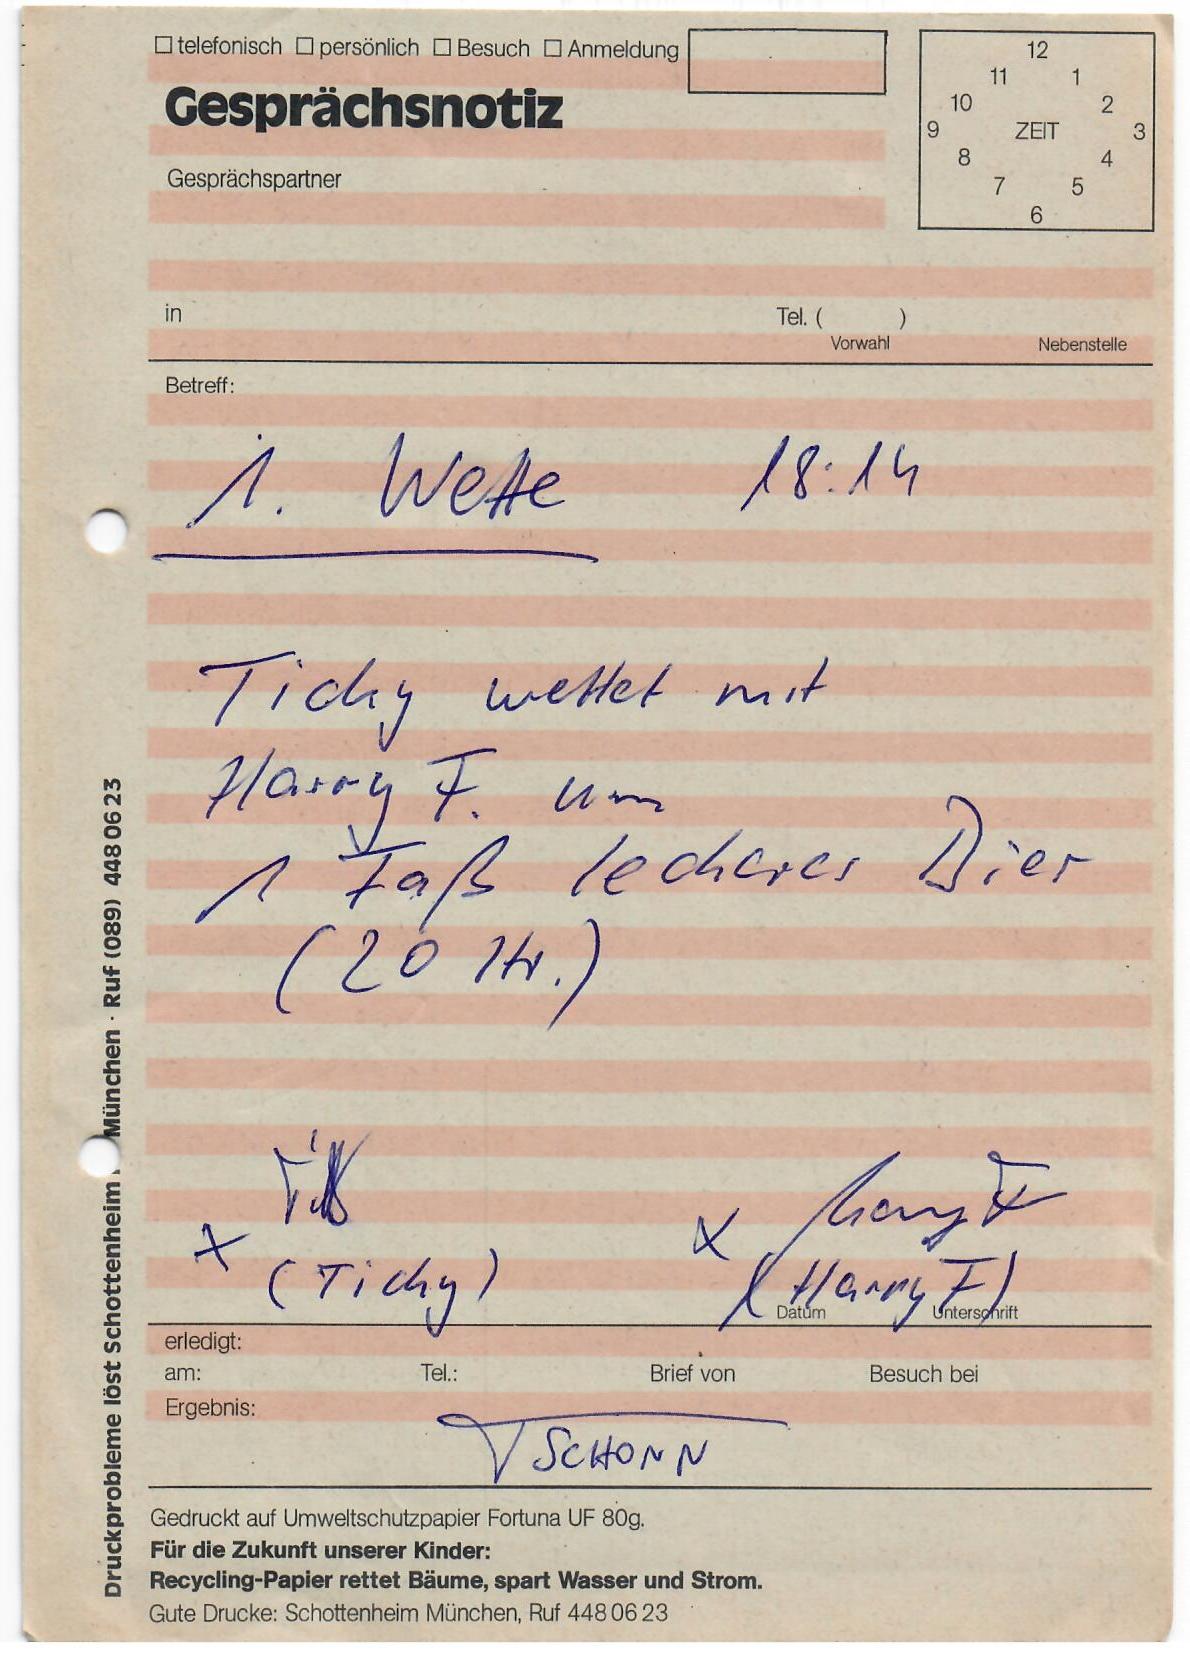 ☐ telefonisch ☐ persönlich ☐ Besuch ☐ Anmeldung
Gesprächsnotiz
12
11 1
10 2
9 ZEIT 3
8 4
7 5
6
Gesprächspartner
in Tel. ( )
Vorwahl Nebenstelle
Betreff:
1. Wette 18:14
Tichy wettet mit
Harry F. um
1 Faß leckeres Bier
(20 ltr.)
x x Harry F
(Tichy) (Harry F)
Datum Unterschrift
erledigt:
am: Tel.: Brief von Besuch bei
Ergebnis:
TSCHONN
Gedruckt auf Umweltschutzpapier Fortuna UF 80g.
Für die Zukunft unserer Kinder:
Recycling-Papier rettet Bäume, spart Wasser und Strom.
Gute Drucke: Schottenheim München, Ruf 448 06 23
Druckprobleme löst Schottenheim München · Ruf (089) 448 06 23